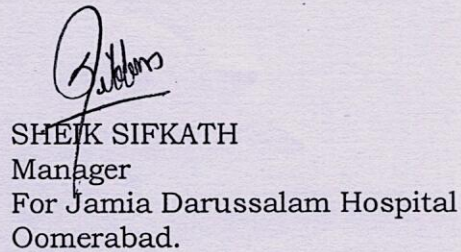 SHEIK SIFKATH
Manager
For Jamia Darussalam Hospital
Oomerabad.